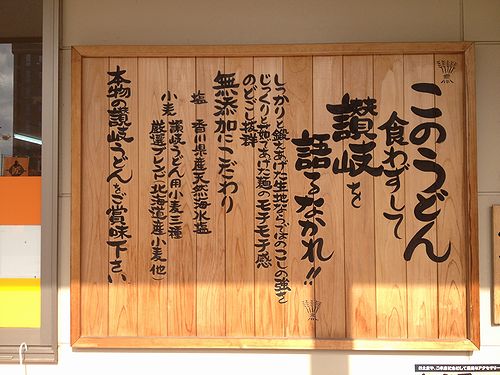 このうどん
食わずして
讃岐を
語るなかれ!!
しっかりと鍛えあげた生地ならではのこしの強さ
じっくりと茹であげた麺のモチモチ感
のどごし抜群
無添加にこだわり
塩 香川県産天然海水塩
小麦 讃岐うどん用小麦三種
厳選ブレンド(北海道産小麦 他)
本物の讃岐うどんをご賞味下さい